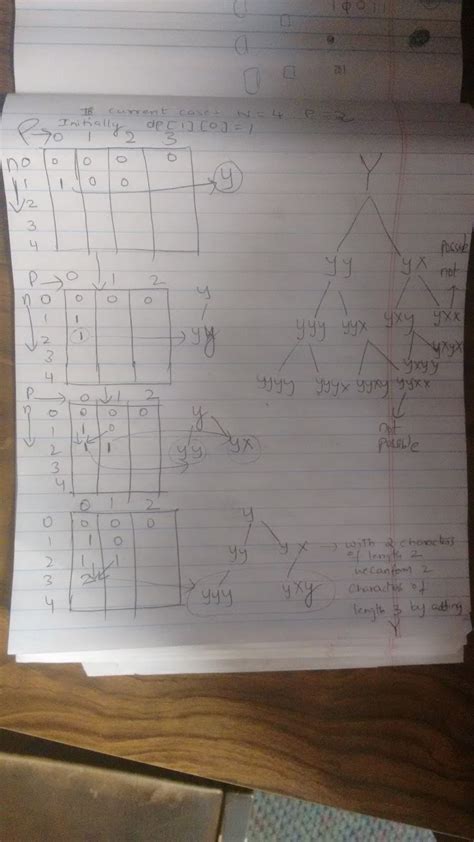 current case: N=4 P=2
Initially dp[1][0]=1
P→ 0 1 2 3
n 0 0 0 0 0
1 1 0 0 → y
2
3
4
P→ 0 1 2
n 0 0 0 0
1 1
2 1 → yy
3
4
y
P→ 0 1 2
n 0 0 0 0
1 1 0
2 1 1
3
4
y
yy yx
0 1 2
0 0 0 0
1 1 0
2 1 1
3 2
4
y
yy yx
yyy yxy
→ with 2 characters
of length 2
we can form 2
characters of
length 3 by adding
y
Y
yy yx
yyy yyx yxy yxx
not possible
yyyy yyyx yyxy yyxx
yxyy yxyx
not
possible